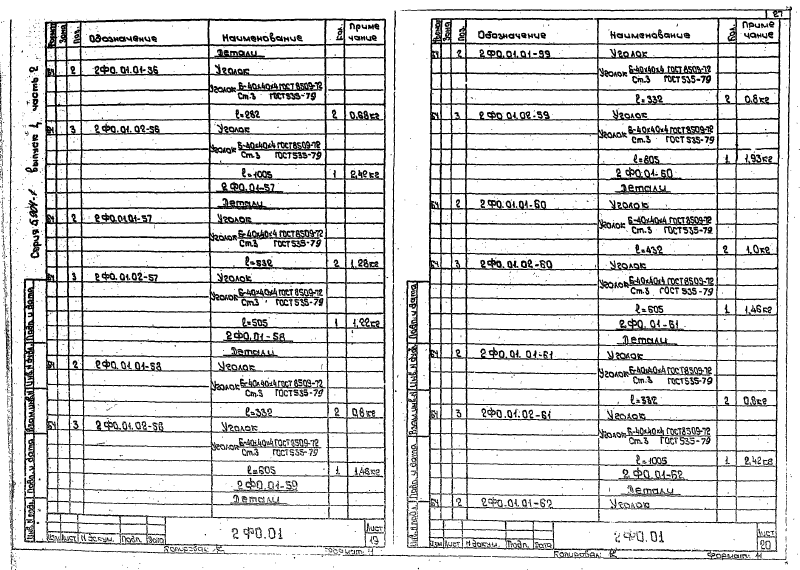 27
Серия 5.904-1 выпуск 1, часть 2
Формат Зона Поз. Обозначение Наименование Кол. Приме чание
Детали
БЧ 2 2ФО.01.01-56 Уголок
Уголок Б-40х40х4 ГОСТ 8509-72
Ст.3 ГОСТ 535-79
ℓ=282 2 0,68кг
БЧ 3 2ФО.01.02-56 Уголок
Уголок Б-40х40х4 ГОСТ 8509-72
Ст.3 ГОСТ 535-79
ℓ=1005 1 2,42кг
2ФО.01-57
Детали
БЧ 2 2ФО.01.01-57 Уголок
Уголок Б-40х40х4 ГОСТ 8509-72
Ст.3 ГОСТ 535-79
ℓ=532 2 1,28кг
БЧ 3 2ФО.01.02-57 Уголок
Уголок Б-40х40х4 ГОСТ 8509-72
Ст.3 ГОСТ 535-79
ℓ=505 1 1,22кг
2ФО.01-58
Детали
БЧ 2 2ФО.01.01-58 Уголок
Уголок Б-40х40х4 ГОСТ 8509-72
Ст.3 ГОСТ 535-79
ℓ=332 2 0,8кг
БЧ 3 2ФО.01.02-58 Уголок
Уголок Б-40х40х4 ГОСТ 8509-72
Ст.3 ГОСТ 535-79
ℓ=605 1 1,46кг
2ФО.01-59
Детали
Инв.№ подл. Подп. и дата Взам.инв.№ Инв.№ дубл. Подп. и дата
Изм Лист № докум. Подп. Дата
2ФО.01
Лист
19
Копировал Формат 11
Формат Зона Поз. Обозначение Наименование Кол. Приме чание
БЧ 2 2ФО.01.01-59 Уголок
Уголок Б-40х40х4 ГОСТ 8509-72
Ст.3 ГОСТ 535-79
ℓ=332 2 0,8кг
БЧ 3 2ФО.01.02-59 Уголок
Уголок Б-40х40х4 ГОСТ 8509-72
Ст.3 ГОСТ 535-79
ℓ=805 1 1,93кг
2ФО.01-60
Детали
БЧ 2 2ФО.01.01-60 Уголок
Уголок Б-40х40х4 ГОСТ 8509-72
Ст.3 ГОСТ 535-79
ℓ=432 2 1,0кг
БЧ 3 2ФО.01.02-60 Уголок
Уголок Б-40х40х4 ГОСТ 8509-72
Ст.3 ГОСТ 535-79
ℓ=605 1 1,46кг
2ФО.01-61
Детали
БЧ 2 2ФО.01.01-61 Уголок
Уголок Б-40х40х4 ГОСТ 8509-72
Ст.3 ГОСТ 535-79
ℓ=332 2 0,8кг
БЧ 3 2ФО.01.02-61 Уголок
Уголок Б-40х40х4 ГОСТ 8509-72
Ст.3 ГОСТ 535-79
ℓ=1005 1 2,42кг
2ФО.01-62
Детали
БЧ 2 2ФО.01.01-62 Уголок
Инв.№ подл. Подп. и дата Взам.инв.№ Инв.№ дубл. Подп. и дата
Изм Лист № докум. Подп. Дата
2ФО.01
Лист
20
Копировал Формат 11